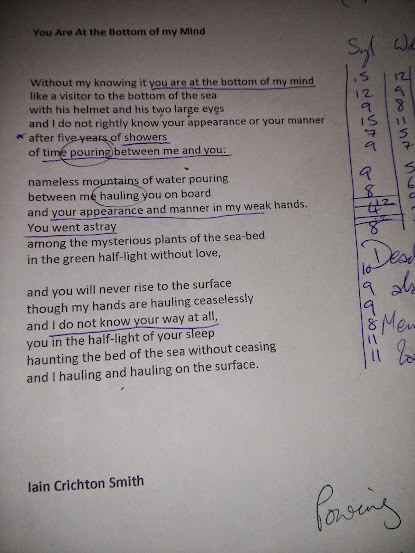 You Are At the Bottom of my Mind
Syl
Without my knowing it you are at the bottom of my mind
15 12
like a visitor to the bottom of the sea
12 9
with his helmet and his two large eyes
9 8
and I do not rightly know your appearance or your manner
15 11
after five years of showers
7 5
of time pouring between me and you:
9 7
nameless mountains of water pouring
9 5
between me hauling you on board
8
and your appearance and manner in my weak hands.
You went astray
among the mysterious plants of the sea-bed
in the green half-light without love,
10
and you will never rise to the surface
9
though my hands are hauling ceaselessly
9
and I do not know your way at all,
8
you in the half-light of your sleep
11
haunting the bed of the sea without ceasing
11
and I hauling and hauling on the surface.
Iain Crichton Smith
Pouring